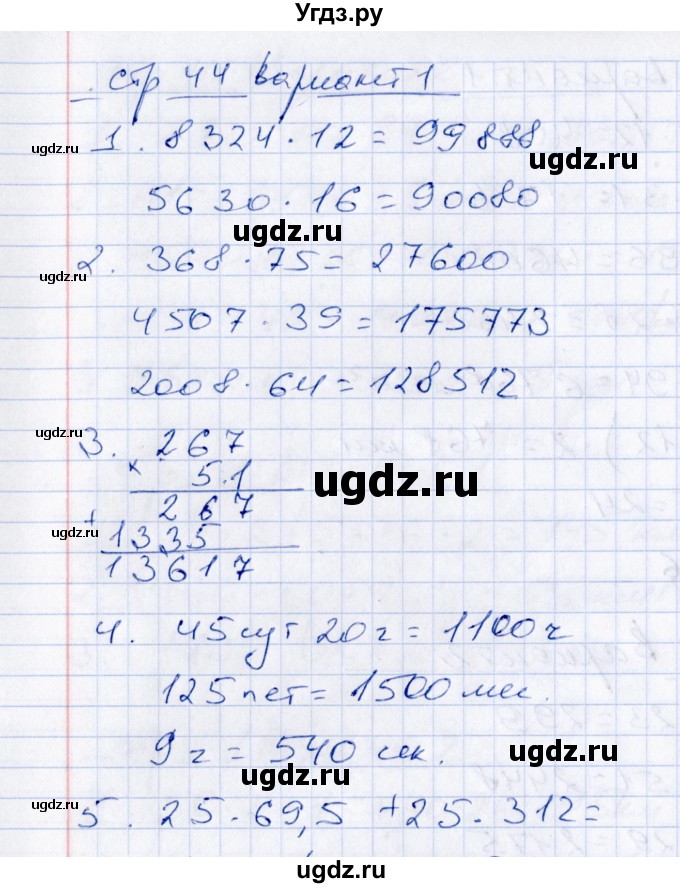 Угдз.ру
стр 44 вариант 1
ugdz.ru
1. 8324 · 12 = 99888
ugdz.ru
5630 · 16 = 90080
ugdz.ru
ugdz.ru
2. 368 · 75 = 27600
4507 · 39 = 175773
2008 · 64 = 128512
ugdz.ru
3. 267
× 5.1
ugdz.ru
267
ugdz.ru
+ 1335
13617
ugdz.ru
4. 45 сут 20 г = 1100 ч
125 лет = 1500 мес.
ugdz.ru
9 г = 540 сек.
ugdz.ru
ugdz.ru
5. 25 · 69,5 + 25 · 312 =
ugdz.ru
Угдз.ру